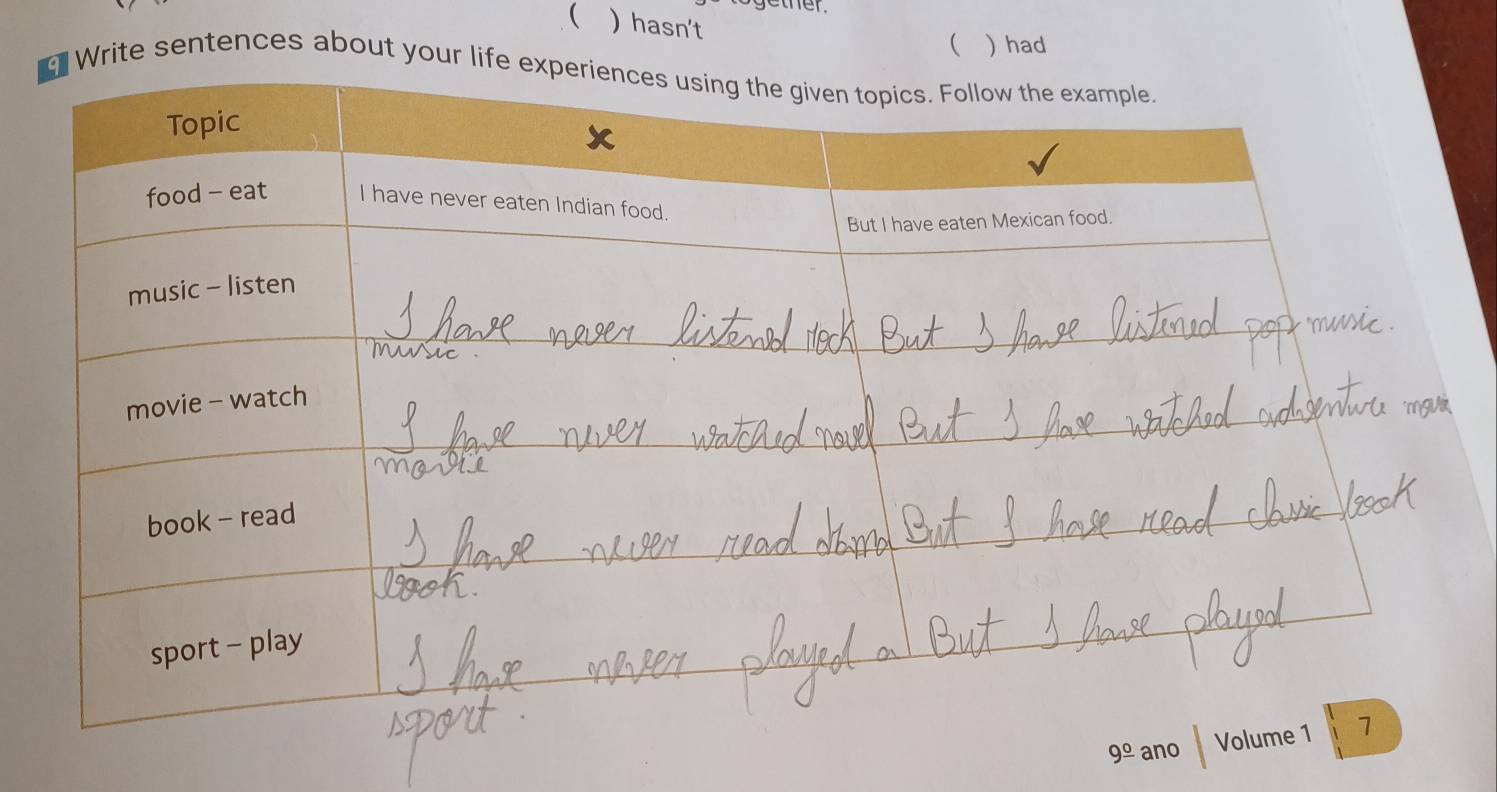 ( ) hasn't
( ) had
9 Write sentences about your life experiences using the given topics. Follow the example.
Topic
food - eat
I have never eaten Indian food.
But I have eaten Mexican food.
music - listen
I have never listened rock
music.
But I have listened pop music.
movie - watch
I have never watched novel
movie
But I have watched adventure
book - read
I have never read
book.
But I have read classic book
sport - play
I have never played a
sport.
But I have played
9º ano | Volume 1 7